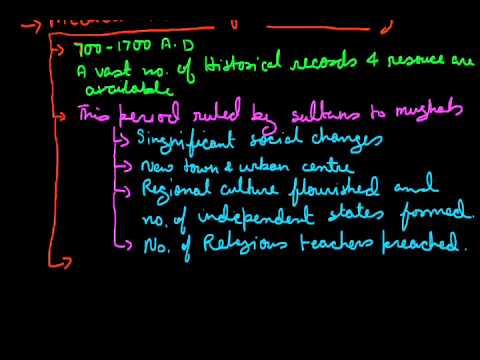 700-1700 A.D
A vast no. of Historical records & resouce are
available
This period ruled by sultans to mughals
Singnificant social changes
New town & urban centre
Regional culture flourished and
no. of independent states formed.
No. of Religious teachers preached.